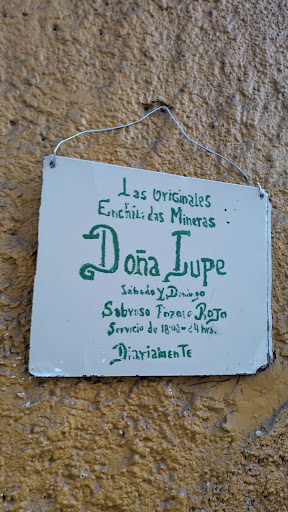 Las Originales
Enchiladas Mineras
Doña Lupe
Sábado Y Domingo
Sabroso Pozole Rojo
Servicio de 18:00 a 24 hrs.
Diariamente